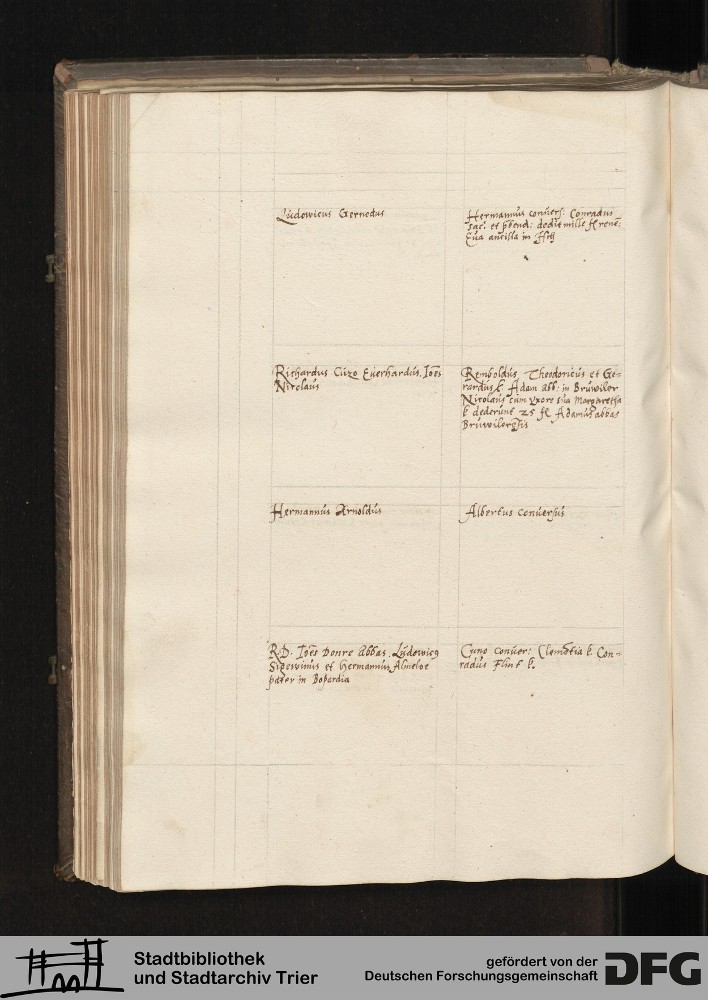 Ludowicus Gernodus
Hermannus conuers: Conradus
sac: et pbend: dedit mille fl renē:
Eua ancilla in
Richardus Cuzo Euerhardus. Ioēs
Nicolaus
Remboldus, Theodoricus et Ge-
rardus k. Adam abb: in Bruwiler
Nicolaus cum vxore sua Margaretha
k dederunt 25 fl Adamus abbas
Hermannus Arnoldus
Albertus conuersus
RD. Ioēs Donre abbas. Ludowicꝰ
Sigewinus et Hermannus Almeloe
pater in Bopardia
Cuno conuer: Clemētia k. Con-
radus Flint k.
Stadtbibliothek
und Stadtarchiv Trier
gefördert von der
Deutschen Forschungsgemeinschaft
DFG